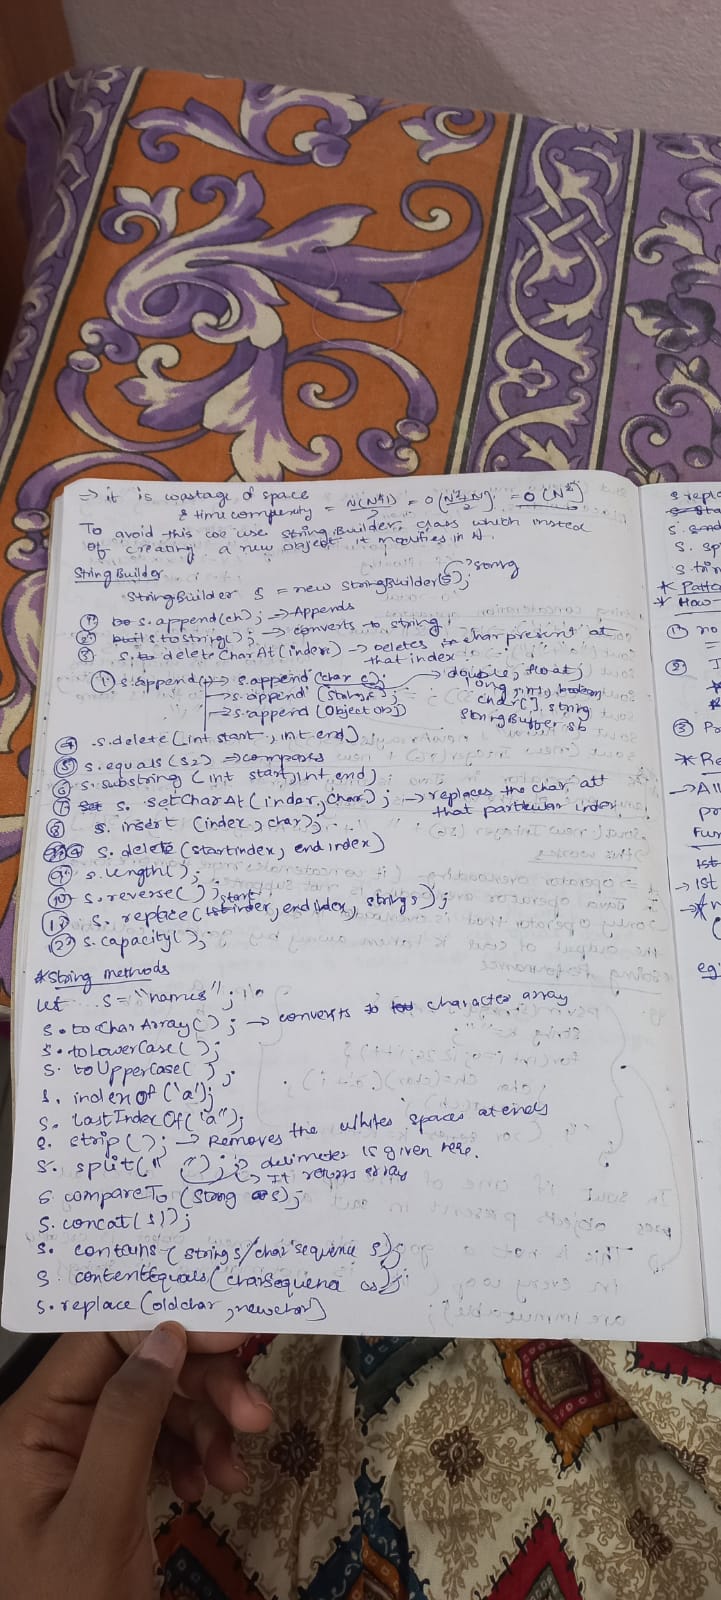 => it is wastage of space
& time complexity = N(N+1)/2 = O(N²+N/2) = O(N²)
To avoid this we use StringBuilder class which insted
of creating a new object it modifies in it.
StringBuilder
StringBuilder s = new StringBuilder(s); → string
① s.append(ch); → Appends
② s.toString(); → converts to string
③ s.deleteCharAt(index) → Deletes char present at
that index
① s.append() → s.append(char c); → double, float,
long, int, boolean
→ s.append(string s);
char[], string
→ s.append(Object obj)
StringBuffer sb
④ s.delete(int start, int end)
⑤ s.equals(s2) → compares
⑥ s.substring(int start, int end);
⑦ s. setCharAt(index, char); → replaces the char att
that particular index.
⑧ s. insert (index, char);
s. delete (startindex, endindex)
⑨ s. length();
⑩ s. reverse();
⑪ s. replace(start index, end index, string s);
⑫ s. capacity();
*String methods
let s = "names";
s. toCharArray(); → converts to character array
s. toLowerCase();
s. toUpperCase();
s. indexOf('a');
s. lastIndexOf("a");
s. strip(); → Removes the white spaces at ends
s. split(" "); → delimeter is given here.
→ It returns array
s. compareTo (String s);
s. concat(s1);
s. contains (string s/char sequence s);
s. contentEquals(charSequence cs);
s. replace (oldchar, newchar)
s. sp
s. trim
* Patte
* How
① no
=
② I
③ Pr
* Re
→ All
pr
Fun
1st
→ 1st
eg: